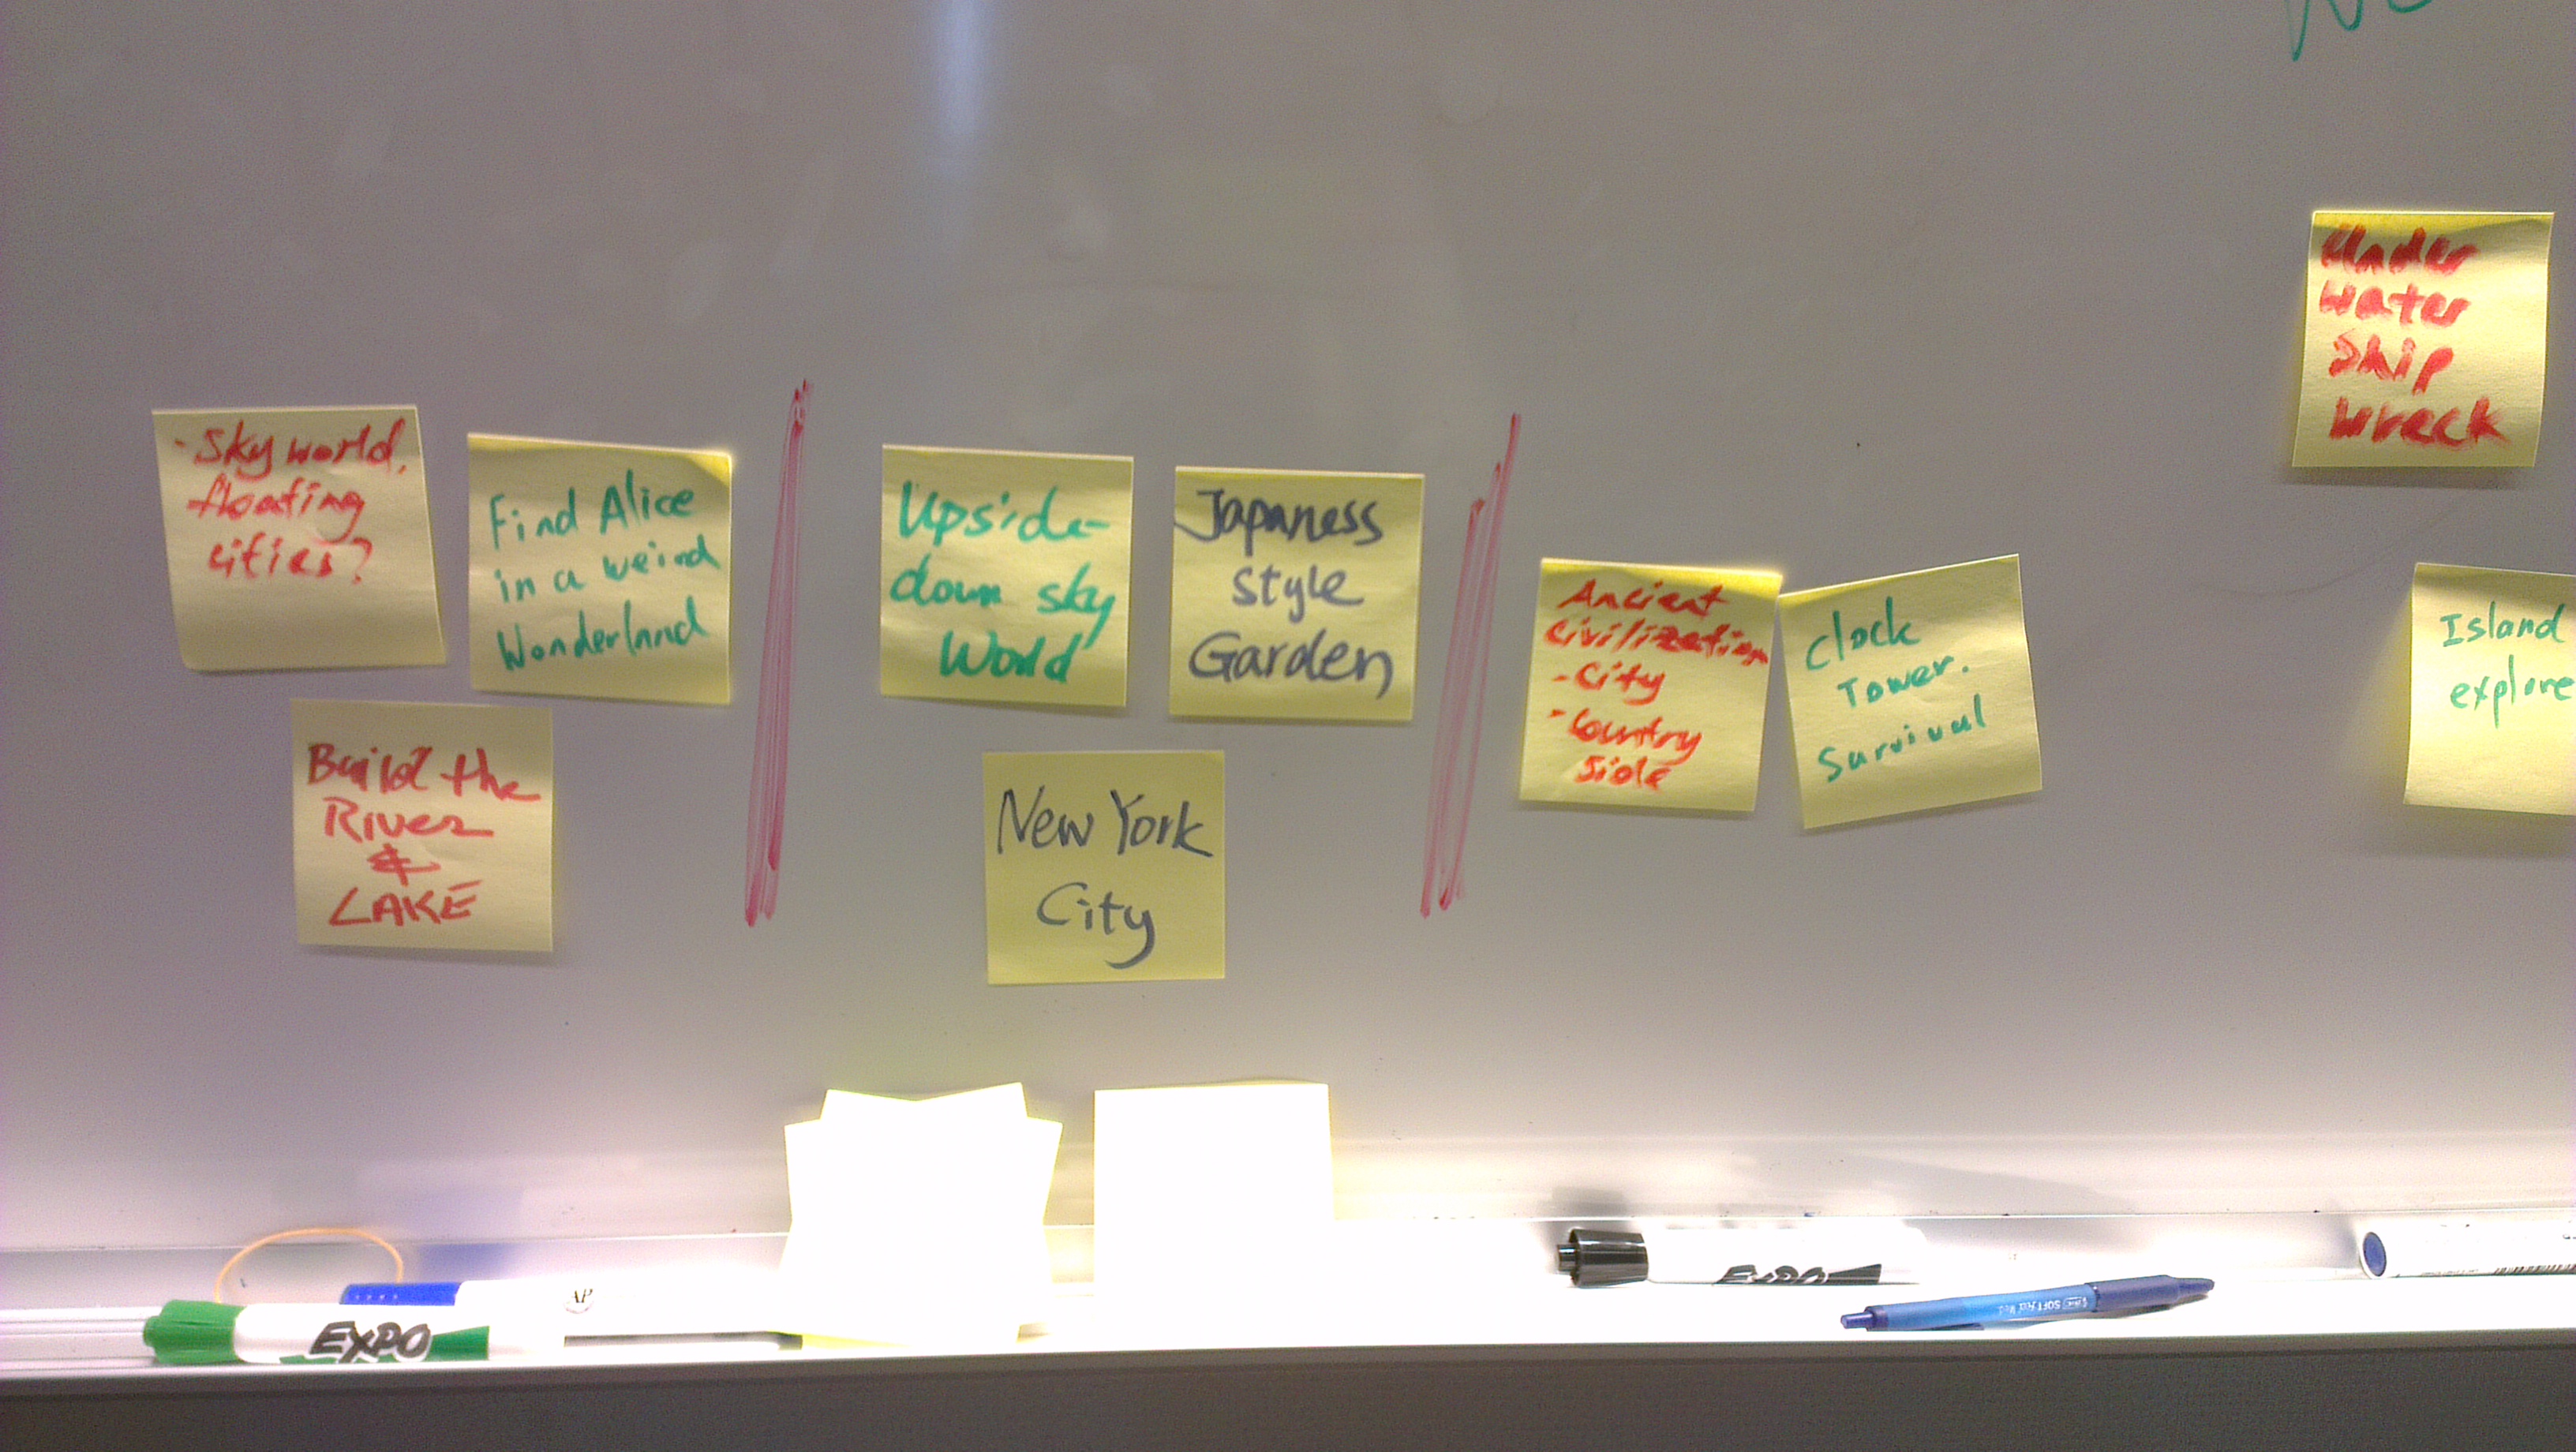 - Sky world,
floating
cities?
Find Alice
in a weird
Wonderland
Build the
River
&
LAKE
Upside-
down sky
World
Japaness
style
Garden
New York
City
Ancient
Civilization
- City
- Country
Side
Clock
Tower.
Survival
Under
water
Ship
wreck
Island
explore
EXPO
AP
EXPO